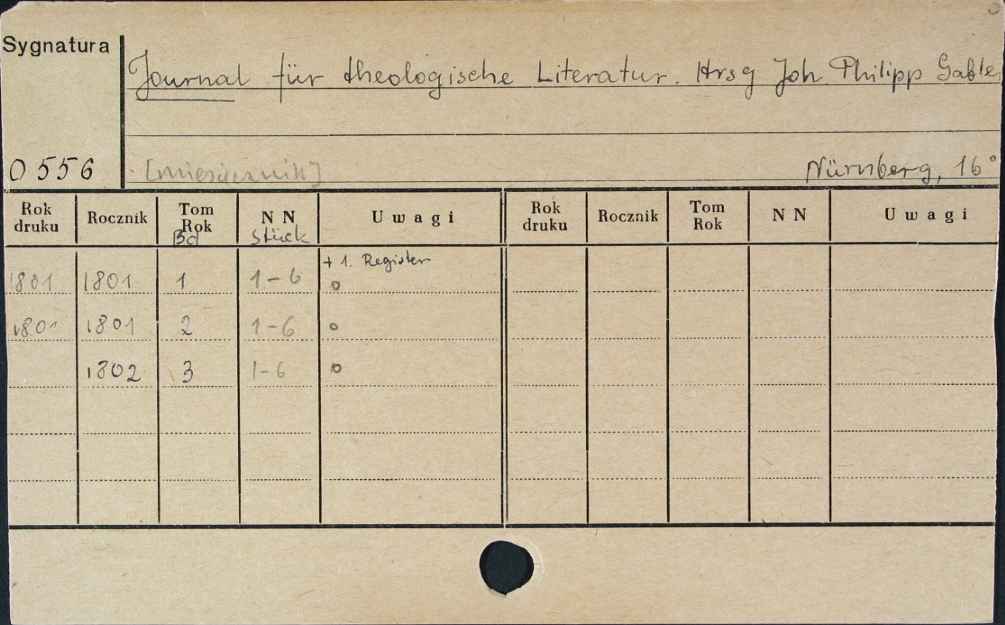 Sygnatura
Journal für theologische Literatur. Hrsg Joh Philipp Gable
O 556
[miesięcznik]
Nürnberg, 16°
Rok druku Rocznik Tom Rok Bd NN Stück Uwagi Rok druku Rocznik Tom Rok NN Uwagi
+ 1. Register
1801 1801 1 1-6 o
1801 1801 2 1-6 o
1802 3 1-6 o